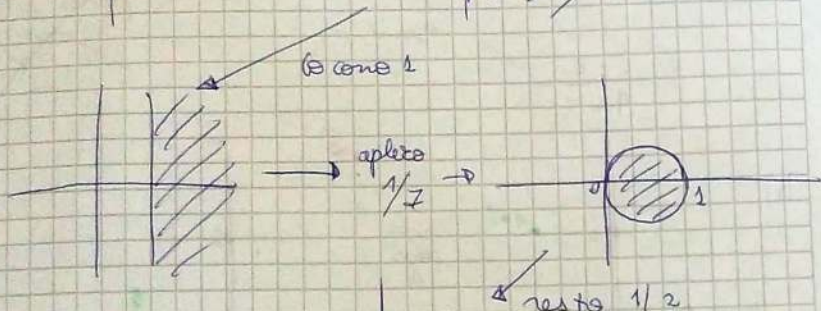 lo corro 1
aplico
1/Z
0
1
resto 1/2